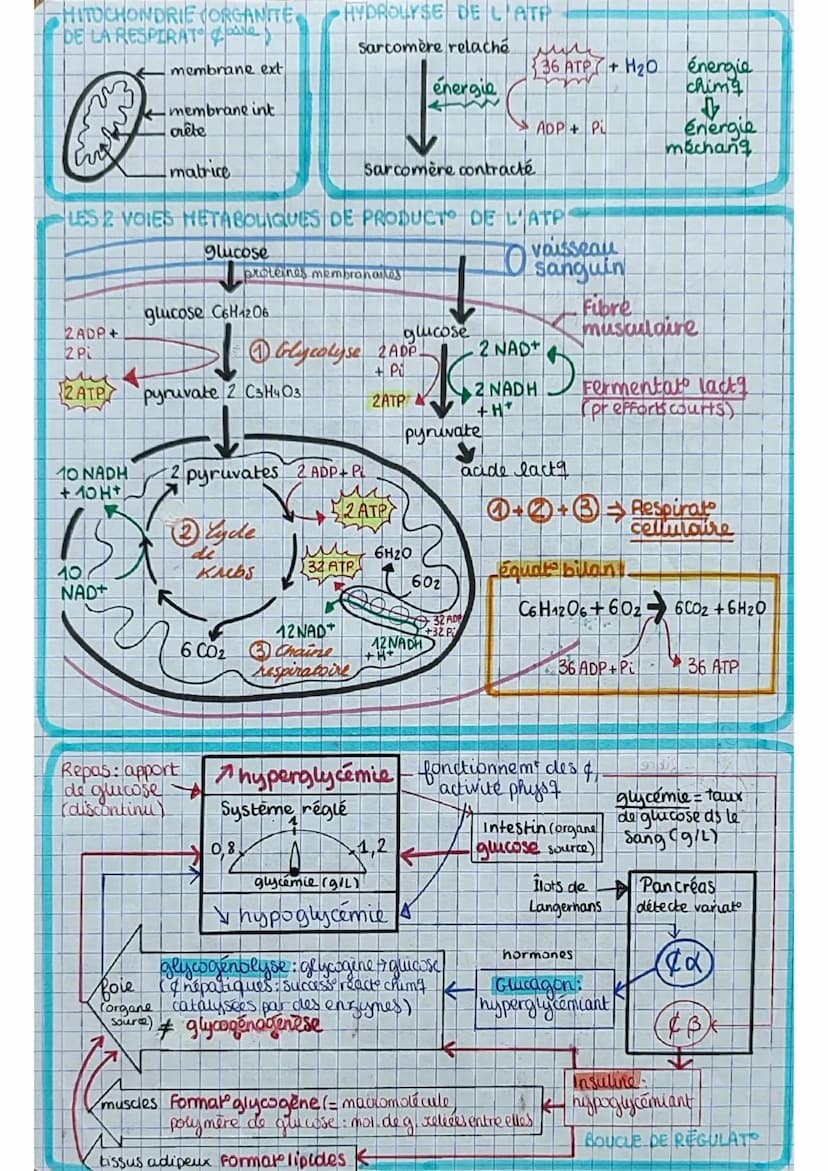 MITOCHONDRIE (ORGANITE
DE LA RESPIRAT° ¢
HYDROLYSE DE L'ATP
membrane ext
membrane int
crête
matrice
sarcomère relaché
énergie
36 ATP + H2O
ADP + Pi
sarcomère contracté
énergie
chimq
énergie
méchanq
LES 2 VOIES METABOLIQUES DE PRODUCT° DE L'ATP
glucose
protéines membranaires
vaisseau
sanguin
Fibre
musculaire
glucose C6H12O6
2 ADP +
2 Pi
① Glycolyse
2 ATP
pyruvate 2 C3H4O3
glucose
2 ADP
+ Pi
2 ATP
2 NAD+
2 NADH
+ H+
Fermentat° lactq
(pr efforts courts)
pyruvate
acide lactq
10 NADH
+ 10H+
2 pyruvates
2 ADP + Pi
2 ATP
② Cycle
de
Krebs
10
NAD+
32 ATP
6H2O
6O2
32 ADP
+32 Pi
12NAD+
12NADH
+ H+
6 CO2
③ Chaîne
respiratoire
① + ② + ③ ⇒ Respirat°
cellulaire
équat° bilan
C6H12O6 + 6O2 → 6CO2 + 6H2O
36 ADP + Pi
36 ATP
Repas : apport
de glucose
(discontinu)
↗ hyperglycémie
Système réglé
1
0,8
1,2
glycémie (g/L)
↘ hypoglycémie
fonctionnemt des ¢,
activité physq
Intestin (organe
glucose source)
glycémie = taux
de glucose ds le
sang (g/L)
Îlots de
Langerhans
Pancréas
détecte variat°
¢ α
¢ β
hormones
Glucagon :
hyperglycémiant
foie
(organe
source)
glycogénolyse : glycogène → glucose
(¢ hépatiques : success° réact° chimq
catalysées par des enzymes)
≠ glycogénogenèse
Insuline :
hypoglycémiant
muscles Format° glycogène (= macromolécule
polymère de glucose : mol. de g. reliées entre elles
tissus adipeux Format° lipides
BOUCLE DE RÉGULAT°